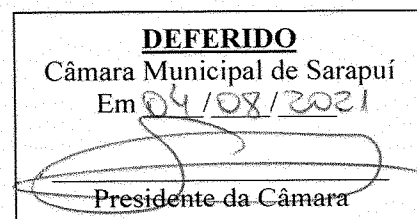 DEFERIDO
Câmara Municipal de Sarapuí
Em 04/08/2021
Presidente da Câmara